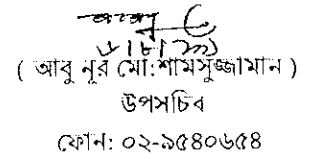 ( আবু নূর মো:শামসুজ্জামান )
উপসচিব
ফোন: ০২-৯৫৪০৬৫৪